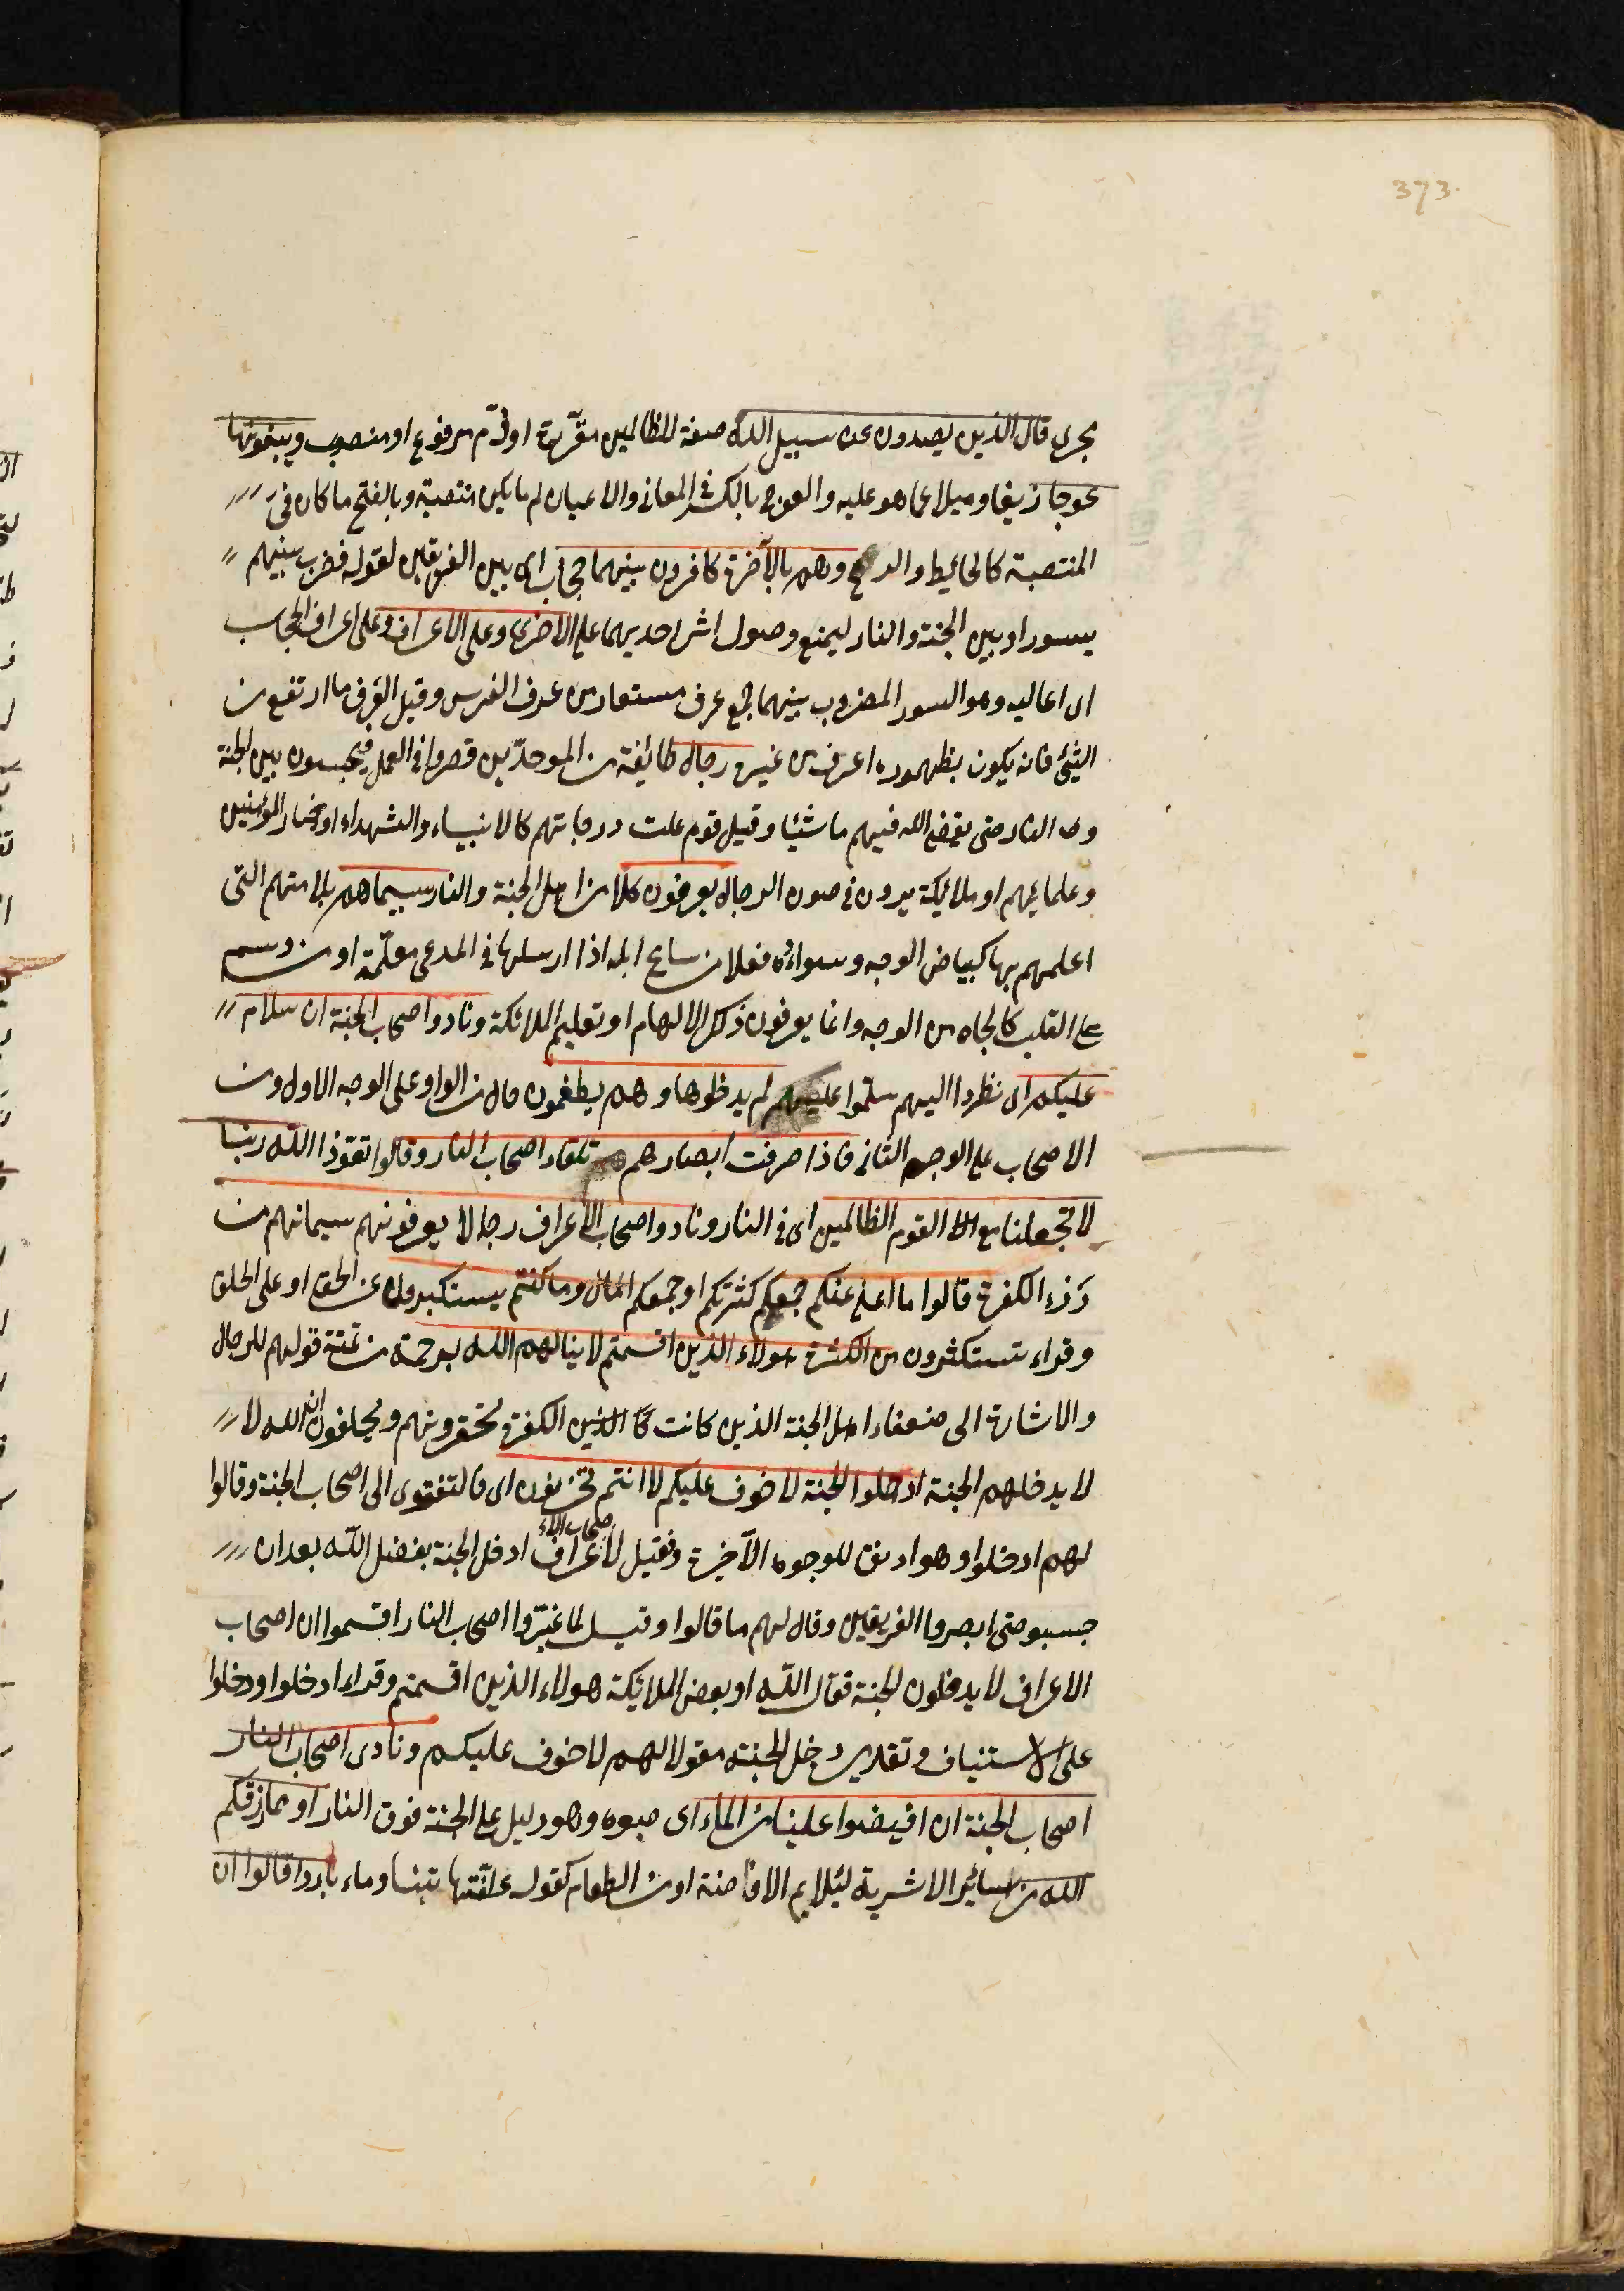 373
مجرى قال الذين يصدون عن سبيل الله صفة للظالمين مقررة او ذم مرفوع او منصوب ويبغونها
عوجا زيغا وميلا عما هو عليه والعوج بالكسر في المعاني والاعيان لم ما يكن منتصبة وبالفتح ما كان في
المنتصبة كالحائط والرمح وهم بالآخرة كافرون بينهما حجاب اى بين الفريقين لقوله فضرب بينهم
بسور او بين الجنة والنار ليمنع وصول اثر احديهما على الاخرى وعلى الاعراف وعلى اعراف الحجاب
اى اعاليه وهو السور المضروب بينهما جمع عرف مستعار من عرف الفرس وقيل العرف ما ارتفع من
الشئ فانه يكون بظهوره اعرف من غيره رجال طائفة من الموحدين قصروا في العمل فيحبسون بين الجنة
و النار حتى يقضى الله فيهم ما شيئا وقيل قوم علت درجاتهم كالانبياء والشهداء او خيار المؤمنين
وعلمائهم او ملائكة يرون في صون الرجال يعرفون كلا من اهل الجنة والنار بسيماهم بلامتهم التى
اعلمهم بها كبياض الوجه وسواده فعلا من سام ابله اذا ارسلها في المرعى معلمة او من وسم
على القلب كالجاه من الوجه وانما يعرفون ذلك الالهام او تعليم الملائكة ونادوا اصحاب الجنة ان سلام
عليكم اى نظروا اليهم سلموا عليهم لم يدخلوها وهم يطمعون حال من الواو على الوجه الاول ومن
الاصحاب على الوجه الثاني فاذا صرفت ابصارهم تلقاء اصحاب النار وقالوا تعوذا الله ربنا
لا تجعلنا مع القوم الظالمين اى في النار ونادوا اصحاب الاعراف رجالا يعرفونهم بسيمانهم من
رزء الكفرة قالوا ما اغنى عنكم جمعكم كثرتكم او جمعكم المال وما كنتم يستكبرون عن الحق او على الخلق
وقراء تستكثرون من الكثرة هولاء الذين اقسمتم لا ينالهم الله برحمة من تمتة قولهم للرجال
والاشارة الى ضعفاء اهل الجنة الذين كانت كا الذين الكفرة تحقرونهم ويحلفون ان الله لا
لا يدخلهم الجنة ادخلوا الجنة لا خوف عليكم لا انتم تحزنون اى فالتفتوى الى اصحاب الجنة وقالوا
لهم ادخلوا وهو اوفق للوجوه الآخيرة وفقيل لاصحاب الاعراف ادخل الجنة بفضل الله بعد ان
حبسبو حتى ابصروا الفريقين وقال لهم ما قالوا وقيل لما غيروا اصحاب النار اقسموا ان اصحاب
الاعراف لا يدخلون الجنة فقال الله او بعض الملائكة هولاء الذين اقسمتم وقراء ادخلوا ودخلوا
على الاستيناف وتقدير دخل الجنة مقولا لهم لا خوف عليكم ونادى اصحاب النار
اصحاب الجنة ان افيضوا علينا من الماء اى صبوه وهو دليل على الجنة فوق النار او مما رزقكم
الله من سائر الاشربة ليلايم الافاضنة او من الطعام كقوله علفتها تبنا وماء باردا قالوا ان